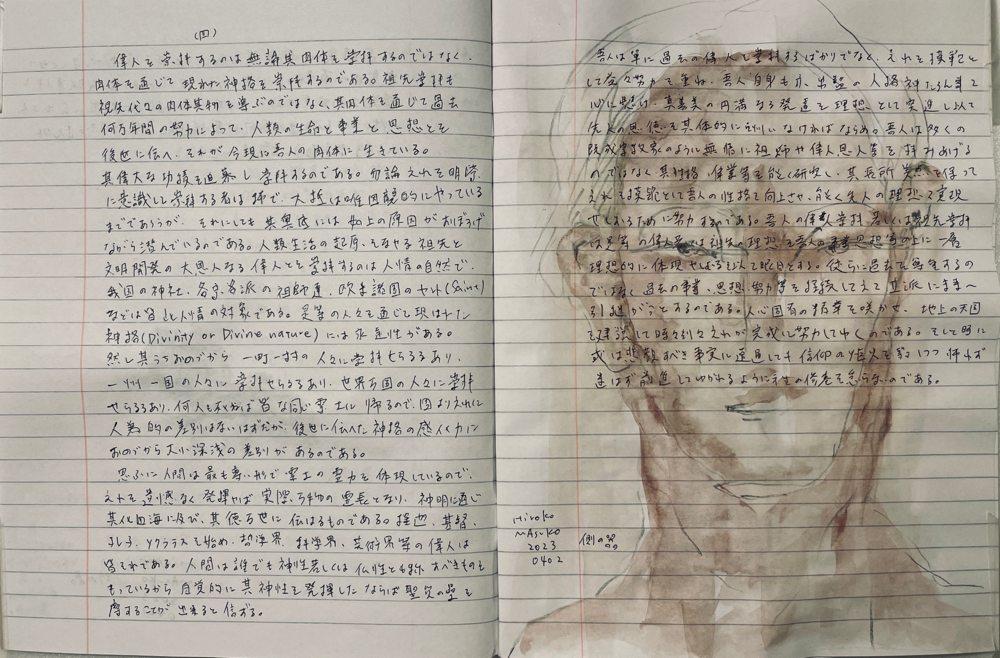 (四)
偉人を崇拝するのは無論其肉体を崇拝するのではなく、
肉体を通じて現れた神格を崇拝するのである。祖先崇拝も
祖先代々の肉体其物を尊ぶのではなく、其肉体を通じて過去
何万年間の努力によって、人類の生命と事業と思想とを
後世に伝へ、それが今現に吾人の肉体に生きている。
其偉大な功績を追慕し崇拝するのである。勿論えれを明瞭
に意識して崇拝する者は稀で、大抵は唯因襲的にやっている
までであらうが、それにしても其奥底には如上の原因がおぼろげ
ながら潜んでいるのである。人類生活の起原をなせる祖先と
文明開発の大恩人なる偉人とを崇拝するのは人情の自然で、
我国の神社、各宗各派の祖師達、欧米諸国のセント(Saint)
などは皆此人情の対象である。是等の人々を通じ現はれた
神格(Divinity or Divine nature)には永遠性がある。
然し其うちおのづから一町一村の人々に崇拝せらるるあり、
一州一国の人々に崇拝せらるるあり、世界万国の人々に崇拝
せらるるあり、何人も死せば皆な同じ霊土に帰るので、固よりえれに
人為的の差別はないはずだが、後世に伝へた神格の感化力に
おのづから大小深浅の差別があるのである。
思ふに人間は最も尊い形で霊土の霊力を体現しているので、
えれを遺憾なく発揮せば実際、万物の霊長となり、神明に通じ
其化四海に及び、其徳万世に伝はるものである。釈迦、基督、
孔子、ソクラテスを始め、哲学界、科学界、芸術界等の偉人は
皆それである。人間は誰でも神性若しくは仏性とも称すべきものを
もっているから自覚的に其神性を発揮したならば聖賢の塁を
摩することが出来ると信ずる。
吾人は単に過去の偉人を崇拝するばかりでなく、えれを模範と
して益々努力を重ね、吾人自身も亦、出藍の人格神たらん事を
心に懸け、真善美の円満なる発達を理想として突進し以て
先人の恩徳を具体的に謝しなければならぬ。吾人は多くの
既成宗教家のように無暗に祖師や偉人恩人等を拝みあげる
のではなく其性格、偉業等を能く研究し、其長所美点を採って
えれを模範として吾人の性格を向上させ、能く先人の理想を実現
せしむるために努力するのである。吾人の偉人崇拝若しくは祖先崇拝
は是等の偉人又は祖先の理想を吾人の事業思想等の上に一層
理想的に体現せしむるを以て眼目とする。徒らに過去を夢見するの
ではなく過去の事業、思想、努力等を接続してえを立派に未来へ
引継がうとするのである。人心固有の指華を咲かせ、地上の天国
を建設して時々刻々えれが完成に努力してゆくのである。そして時に
或は悲歎すべき事実に遭遇しても信仰の炬火を翳しつつ怖れず
迷はず前進してゆかれるように平生の修養を怠らないのである。
Miroko
MAsuko
2023
0402